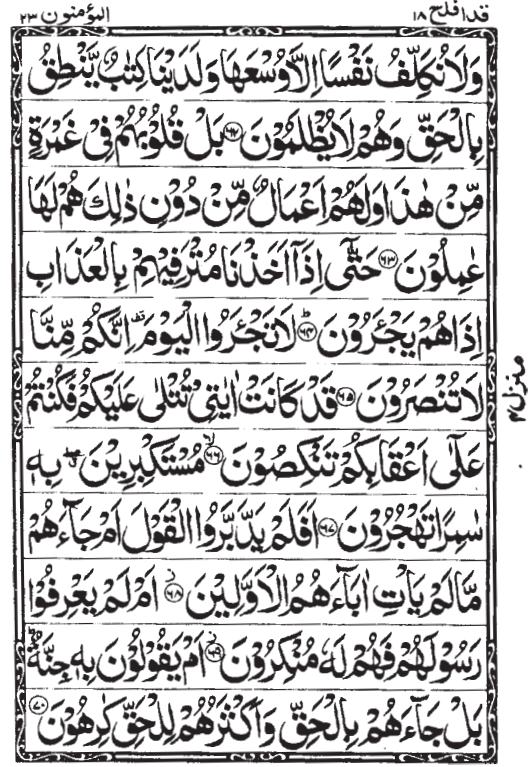 قد افلح ١٨ المؤمنون ٢٣
وَلَا نُكَلِّفُ نَفْسًا اِلَّا وُسْعَهَا وَلَدَيْنَا كِتٰبٌ يَّنْطِقُ
بِالْحَقِّ وَهُمْ لَا يُظْلَمُوْنَ ﴿۶۲﴾ بَلْ قُلُوْبُهُمْ فِيْ غَمْرَةٍ
مِّنْ هٰذَا وَلَهُمْ اَعْمَالٌ مِّنْ دُوْنِ ذٰلِكَ هُمْ لَهَا
عٰمِلُوْنَ ﴿۶۳﴾ حَتّٰٓى اِذَآ اَخَذْنَا مُتْرَفِيْهِمْ بِالْعَذَابِ
اِذَا هُمْ يَجْـَٔرُوْنَ ﴿۶۴﴾ؕ لَا تَجْـَٔرُوا الْيَوْمَ ۟ اِنَّكُمْ مِّنَّا
لَا تُنْصَرُوْنَ ﴿۶۵﴾ قَدْ كَانَتْ اٰيٰتِيْ تُتْلٰى عَلَيْكُمْ فَكُنْتُمْ
عَلٰٓى اَعْقَابِكُمْ تَنْكِصُوْنَ ﴿۶۶﴾ۙ مُسْتَكْبِرِيْنَ ۖۗ بِهٖ
سٰمِرًا تَهْجُرُوْنَ ﴿۶۷﴾ اَفَلَمْ يَدَّبَّرُوا الْقَوْلَ اَمْ جَآءَهُمْ
مَّا لَمْ يَاْتِ اٰبَآءَهُمُ الْاَوَّلِيْنَ ﴿۶۸﴾ اَمْ لَمْ يَعْرِفُوْا
رَسُوْلَهُمْ فَهُمْ لَهٗ مُنْكِرُوْنَ ﴿۶۹﴾ اَمْ يَقُوْلُوْنَ بِهٖ جِنَّةٌ ؕ
بَلْ جَآءَهُمْ بِالْحَقِّ وَاَكْثَرُهُمْ لِلْحَقِّ كٰرِهُوْنَ ﴿۷۰﴾
منزل ۴